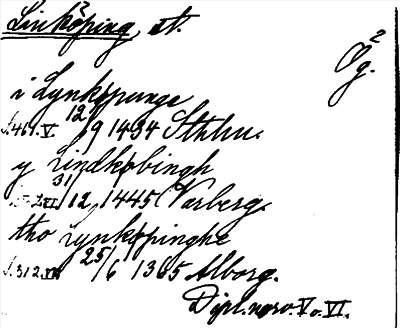 Linköping, st.
Ög. 2
i Lynkøpunge
s.461.V. 12/9 1434 Sthlm.
y Lindkøbingh
31/12 1445 Varberg.
tho Lynkøpinghe
s.312.VI. 25/6 1365 Alborg.
Dipl. norv. V o. VI.